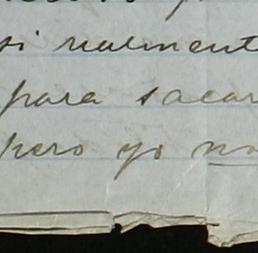 si realmente
para sacar
pero yo no